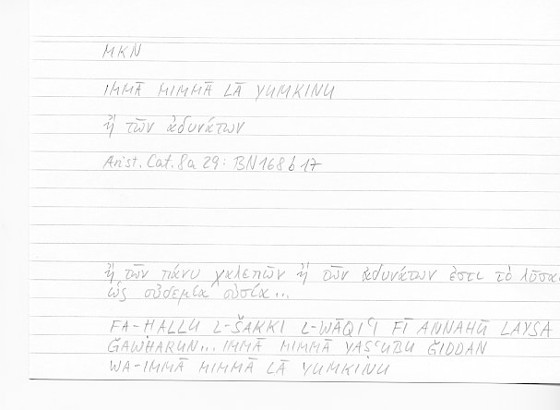 MKN
IMMĀ MIMMĀ LĀ YUMKINU
ἢ τῶν ἀδυνάτων
Arist. Cat. 8a 29: BN 168b 17
ἢ τῶν πάνυ χαλεπῶν ἢ τῶν ἀδυνάτων ἐστι τὸ λῦσαι
ὡς οὐδεμία οὐσία...
FA-ḤALLU L-ŠAKKI L-WĀQIʿI FĪ ANNAHŪ LAYSA
ǦAWHARUN... IMMĀ MIMMĀ YAṢʿUBU ǦIDDAN
WA-IMMĀ MIMMĀ LĀ YUMKINU